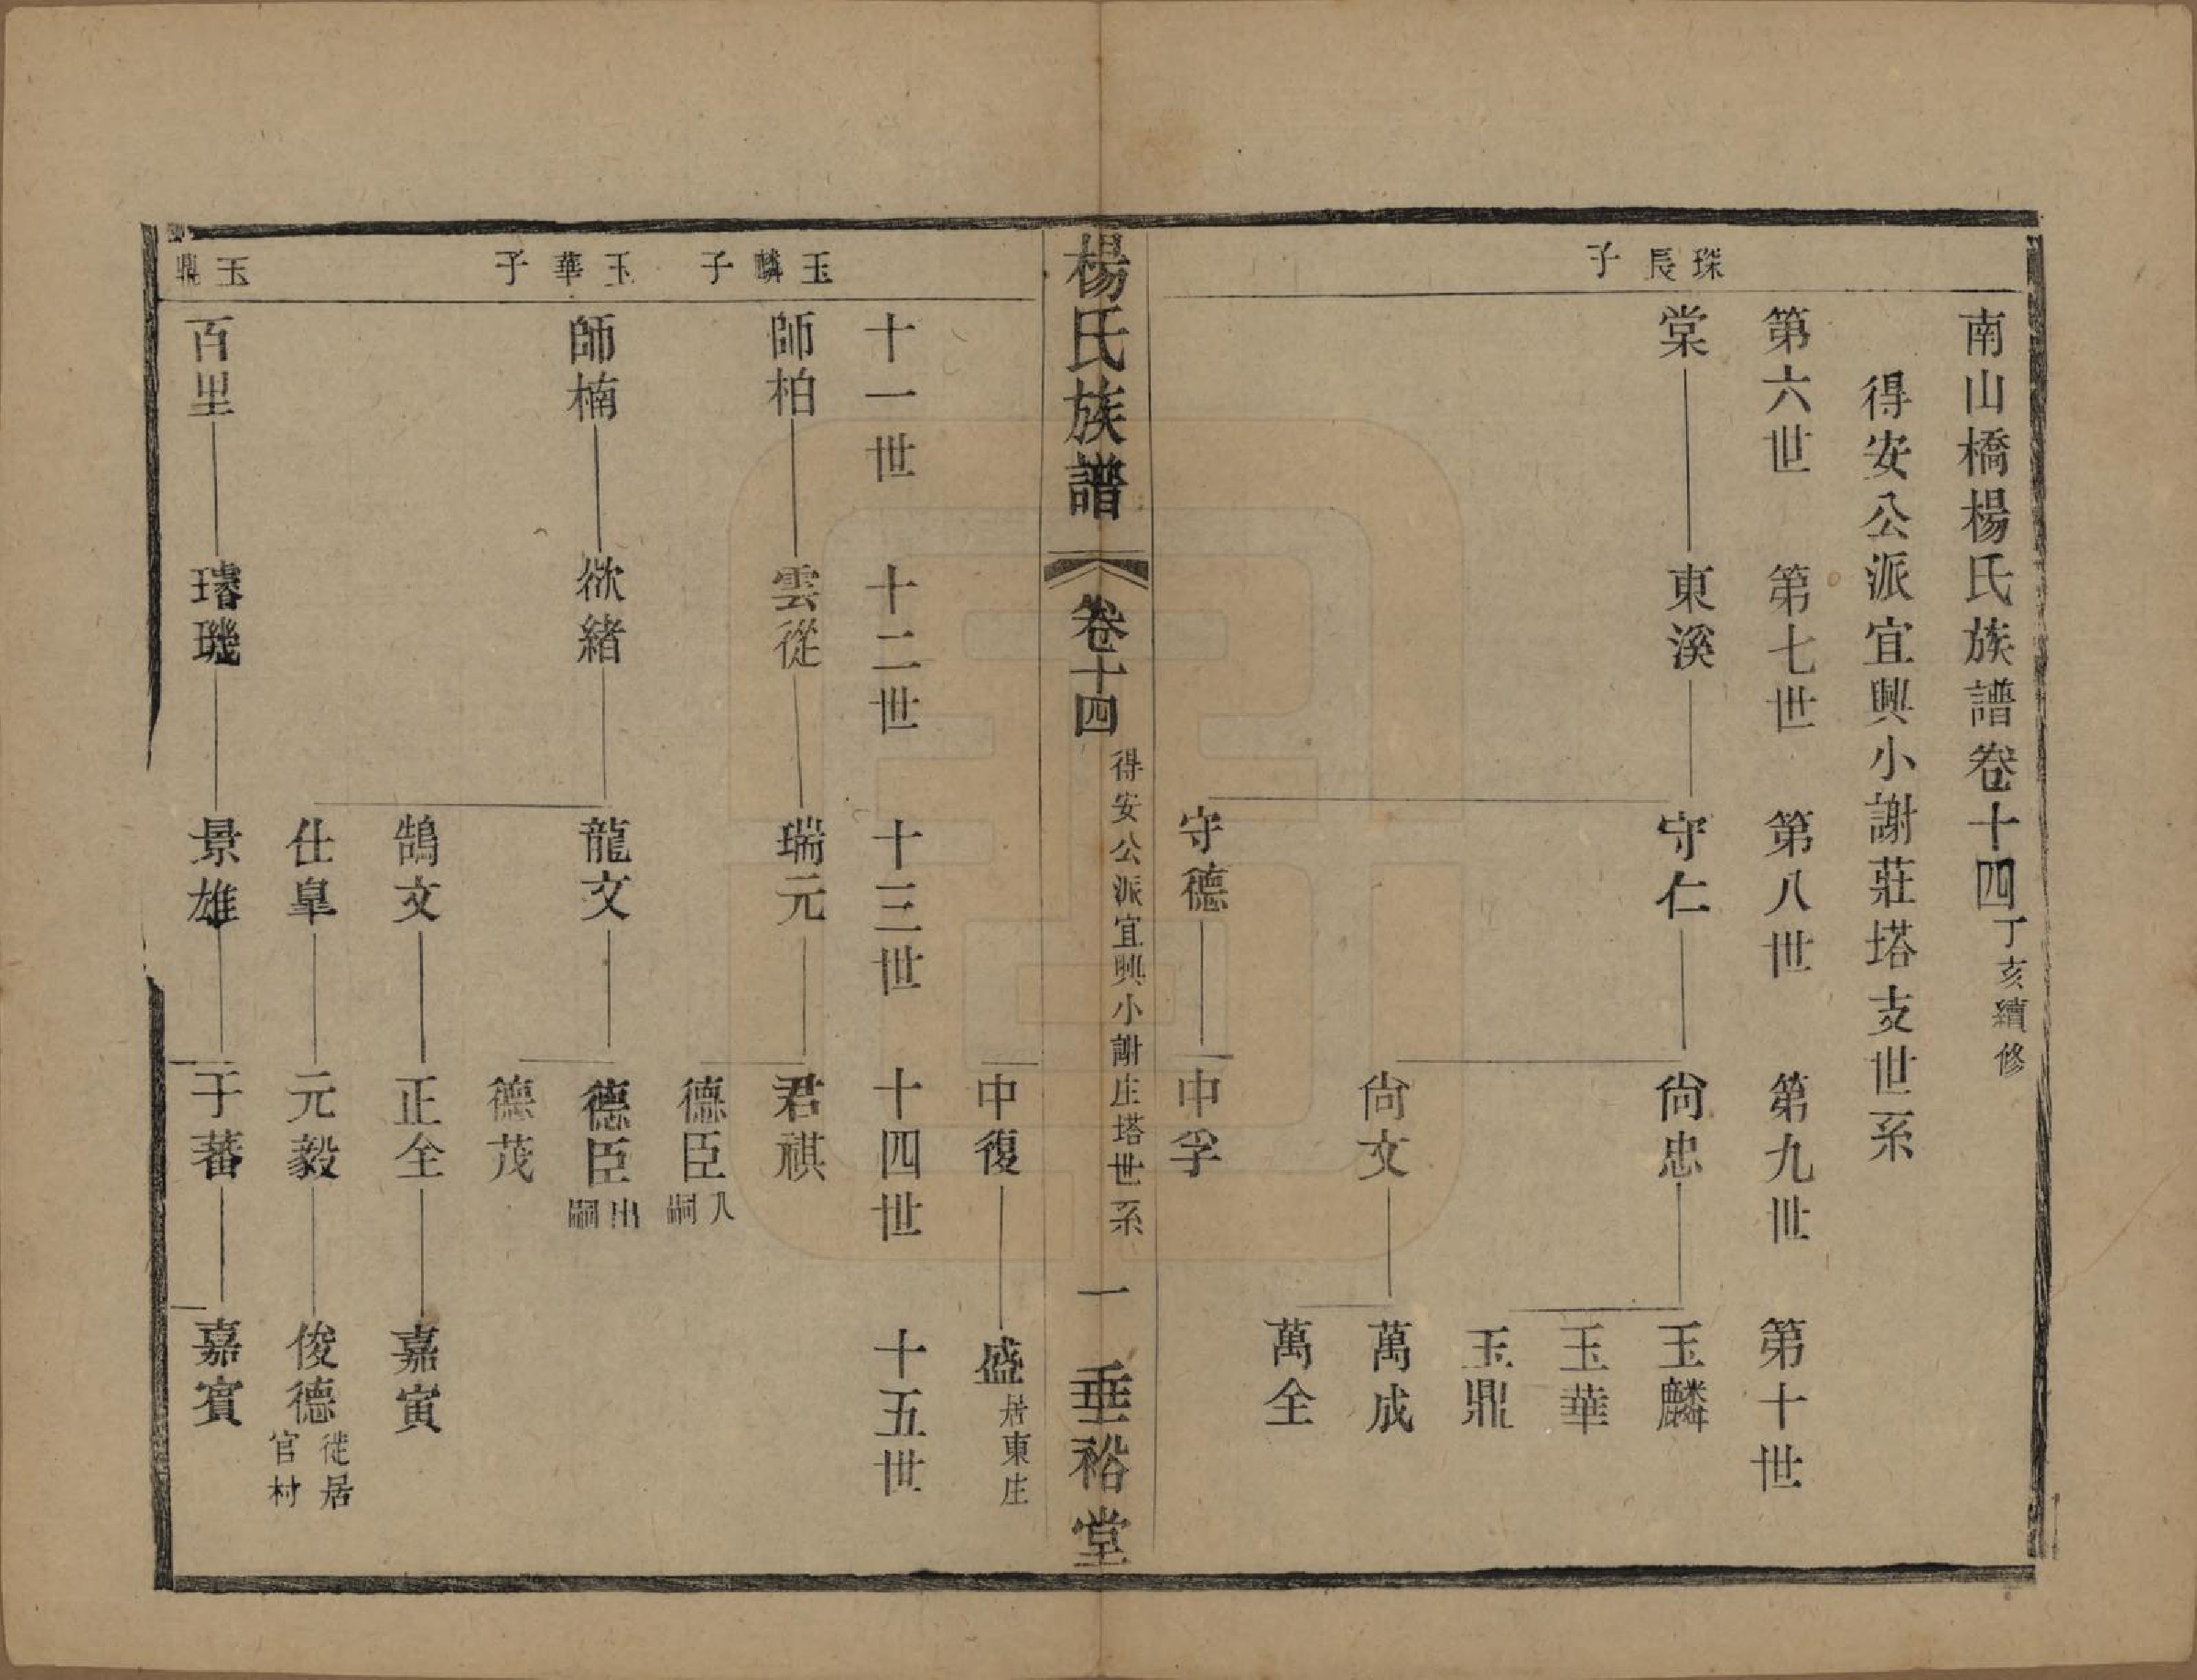 南山橋楊氏族譜卷十四丁亥續修
得安公派宜興小謝莊塔支世系
第六世 第七世 第八世 第九世 第十世
琛長子
棠 東溪 守仁 尙忠 玉麟
玉華
玉鼎
尙文 萬成
萬全
守德 中孚
楊氏族譜 卷十四 得安公派宜興小謝庄塔世系 一 垂裕堂
中復 盛居東庄
十一世 十二世 十三世 十四世 十五世
玉麟子
師柏 雲從 瑞元 君祺
德臣入嗣
玉華子
師楠 欲緒 龍文 德臣出嗣
德茂
鵠文 正全 嘉寅
仕皐 元毅 俊德徙居官村
玉鼎
百里 璿璣 景雄 于蕃 嘉賓